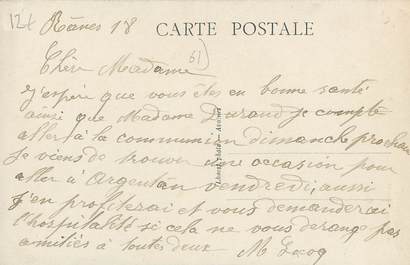 12f Rânes 18 CARTE POSTALE
61
Chère Madame
j'espère que vous êtes en bonne santé
ainsi que Madame Durand je compte
aller à la communion dimanche prochain
je viens de trouver une occasion pour
aller à Argentan vendredi, aussi
j'en profiterai et vous demanderai
l'hospitalité si cela ne vous dérange pas
amitiés à toutes deux M Lecoq